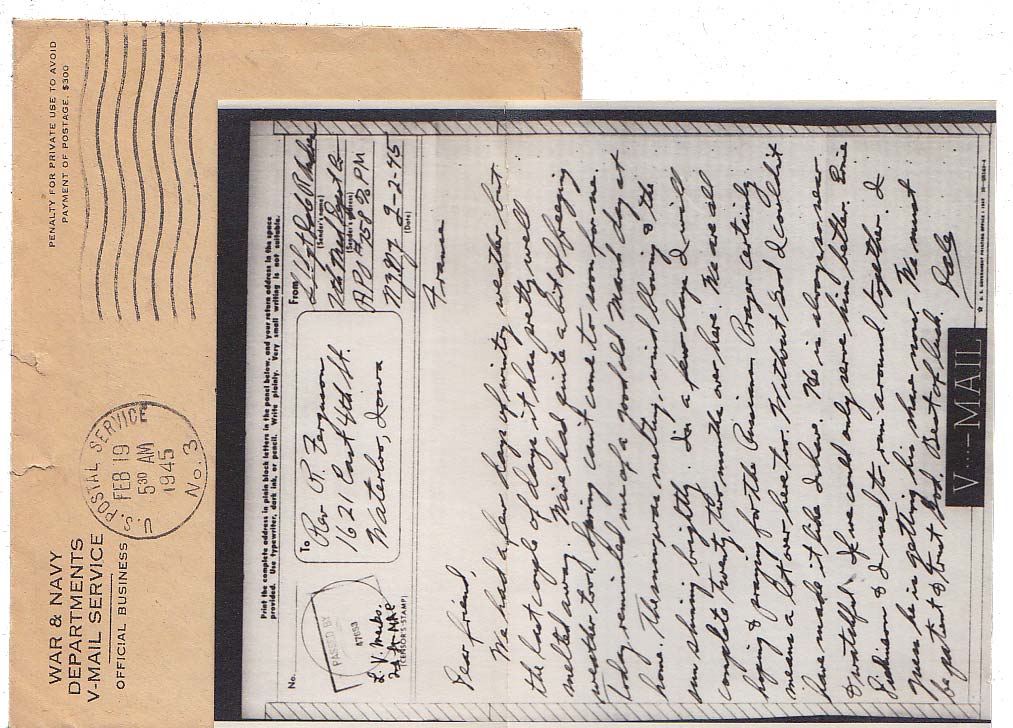 WAR & NAVY
DEPARTMENTS
V-MAIL SERVICE
OFFICIAL BUSINESS
U.S. POSTAL SERVICE
FEB 19
5 30 AM
1945
No. 3
PENALTY FOR PRIVATE USE TO AVOID
PAYMENT OF POSTAGE, $300
Print the complete address in plain block letters in the panel below, and your return address in the space
provided. Use typewriter, dark ink, or pencil. Write plainly. Very small writing is not suitable.
No.
PASSED BY
47053
L. V.
(CENSOR'S STAMP)
To
Rev R. Ferguson
1621 East 4th St.
Waterloo, Iowa
From
(Sender's name)
(Sender's address)
APO 758 % PM
N.Y. N.Y. 2-2-45
(Date)
France
Dear friend,
We had a few days of wintry weather but
the last couple of days it has pretty well
melted away. We've had quite a bit of freezing
weather too & Spring can't come to soon for me.
Today reminded me of a good old March day at
home. The snow was melting, wind blowing & the
sun shining brightly. In a few days I will
complete twenty two months over here. We are all
hoping & praying for the Russians. Prayer certainly
means a lot over here too. Without God I couldn't
have made it like I have. He is always so near
& watchful. If we could only serve him better. Ernie
& I used to run around together. I
guess he is getting his share now. We must
be patient & trust God. Best of luck.
Dale
V···—MAIL
U. S. GOVERNMENT PRINTING OFFICE